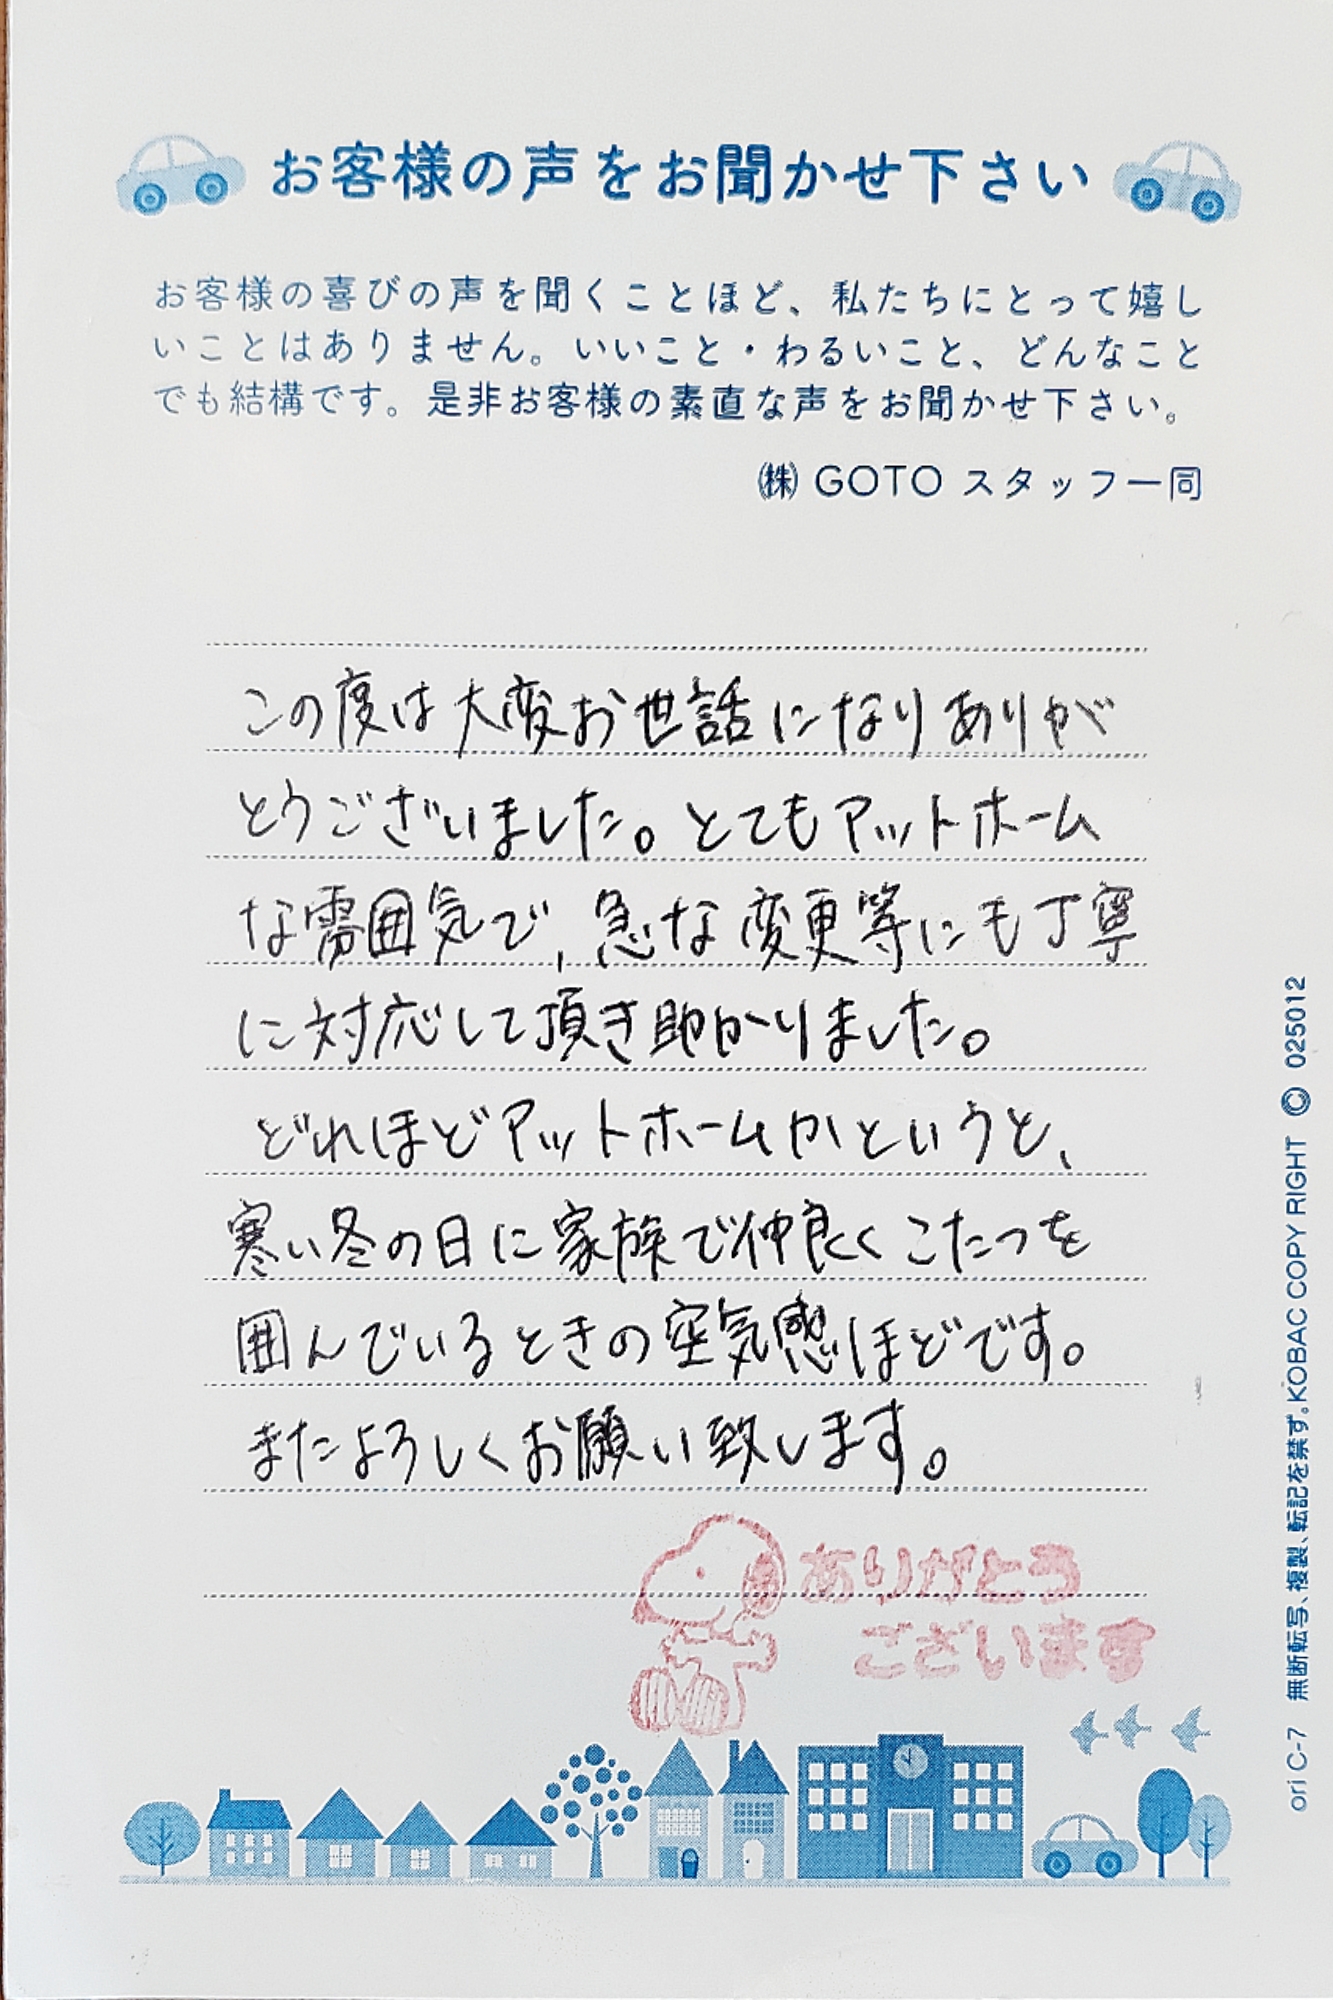 お客様の声をお聞かせ下さい
お客様の喜びの声を聞くことほど、私たちにとって嬉し
いことはありません。いいこと・わるいこと、どんなこと
でも結構です。是非お客様の素直な声をお聞かせ下さい。
㈱ GOTO スタッフ一同
この度は大変お世話になりありが
とうございました。とてもアットホーム
な雰囲気で、急な変更等にも丁寧
に対応して頂き助かりました。
どれほどアットホームかというと、
寒い冬の日に家族で仲良くこたつを
囲んでいるときの空気感ほどです。
またよろしくお願い致します。
ありがとう
ございます
ori C-7 無断転写、複製、転記を禁ず。KOBAC COPY RIGHT © 025012